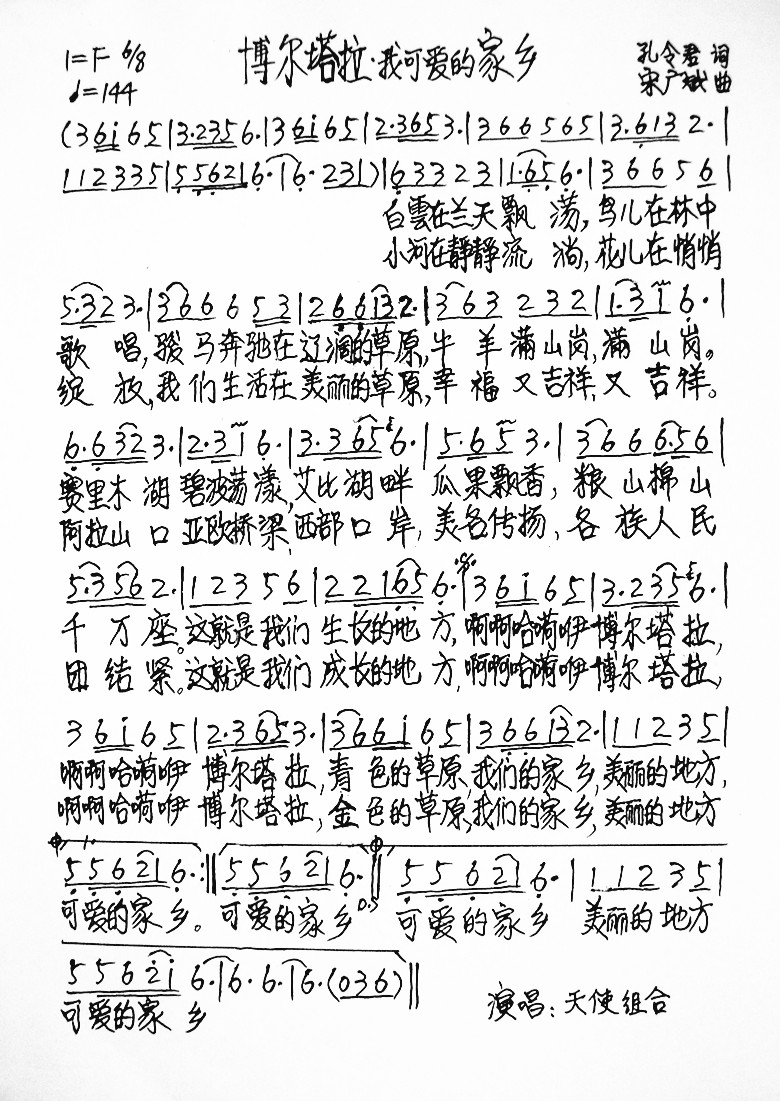 1=F 6/8 博尔塔拉·我可爱的家乡 孔令君 词
♩=144 宋广斌 曲
(36i 65|3·235 6·|36i 65|2·365 3·|366 565|3·613 2·|
112 335|55621|6·|6· 231)|633 23|1·65 6·|366 56|
白雲在兰天飘 荡,鸟儿在林中
小河在静静流 淌,花儿在悄悄
5·32 3·|366 6 53|266132·|363 232|1·31 6·|
歌 唱,骏马奔驰在辽阔的草原,牛 羊 满山岗,满 山 岗。
绽 放,我们生活在美丽的草原,幸 福 又吉祥,又 吉 祥。
6·632 3·|2·31 6·|3·365 6·|5·65 3·|366 656|
赛里木 湖 碧波荡漾,艾比湖畔 瓜果飘香, 粮 山棉 山
阿拉山 口 亚欧桥梁,西部口 岸, 美名传扬, 各 族人 民
5·356 2·|123 56|22165 6·|36i 65|3·235 6·|
千 万 座。这就是我们 生长的地 方,啊啊哈嗬咿博尔塔拉,
团 结 紧。这就是我们 成长的地 方,啊啊哈嗬咿博尔塔拉,
36i 65|2·365 3·|366i 65|36613 2·|112 35|
啊啊哈嗬咿 博尔塔拉,青 色的草原,我们的家乡,美丽的地方,
啊啊哈嗬咿 博尔塔拉,金 色的草原,我们的家乡,美丽的地方
1.
55621 6·:‖55621 6·‖55621 6·|112 35|
可爱的家 乡。 可爱的家乡 D.S 可爱的家乡 美丽的地方
5562i 6·|6·6·|6·(036)‖
可爱的家 乡 演唱:天使组合